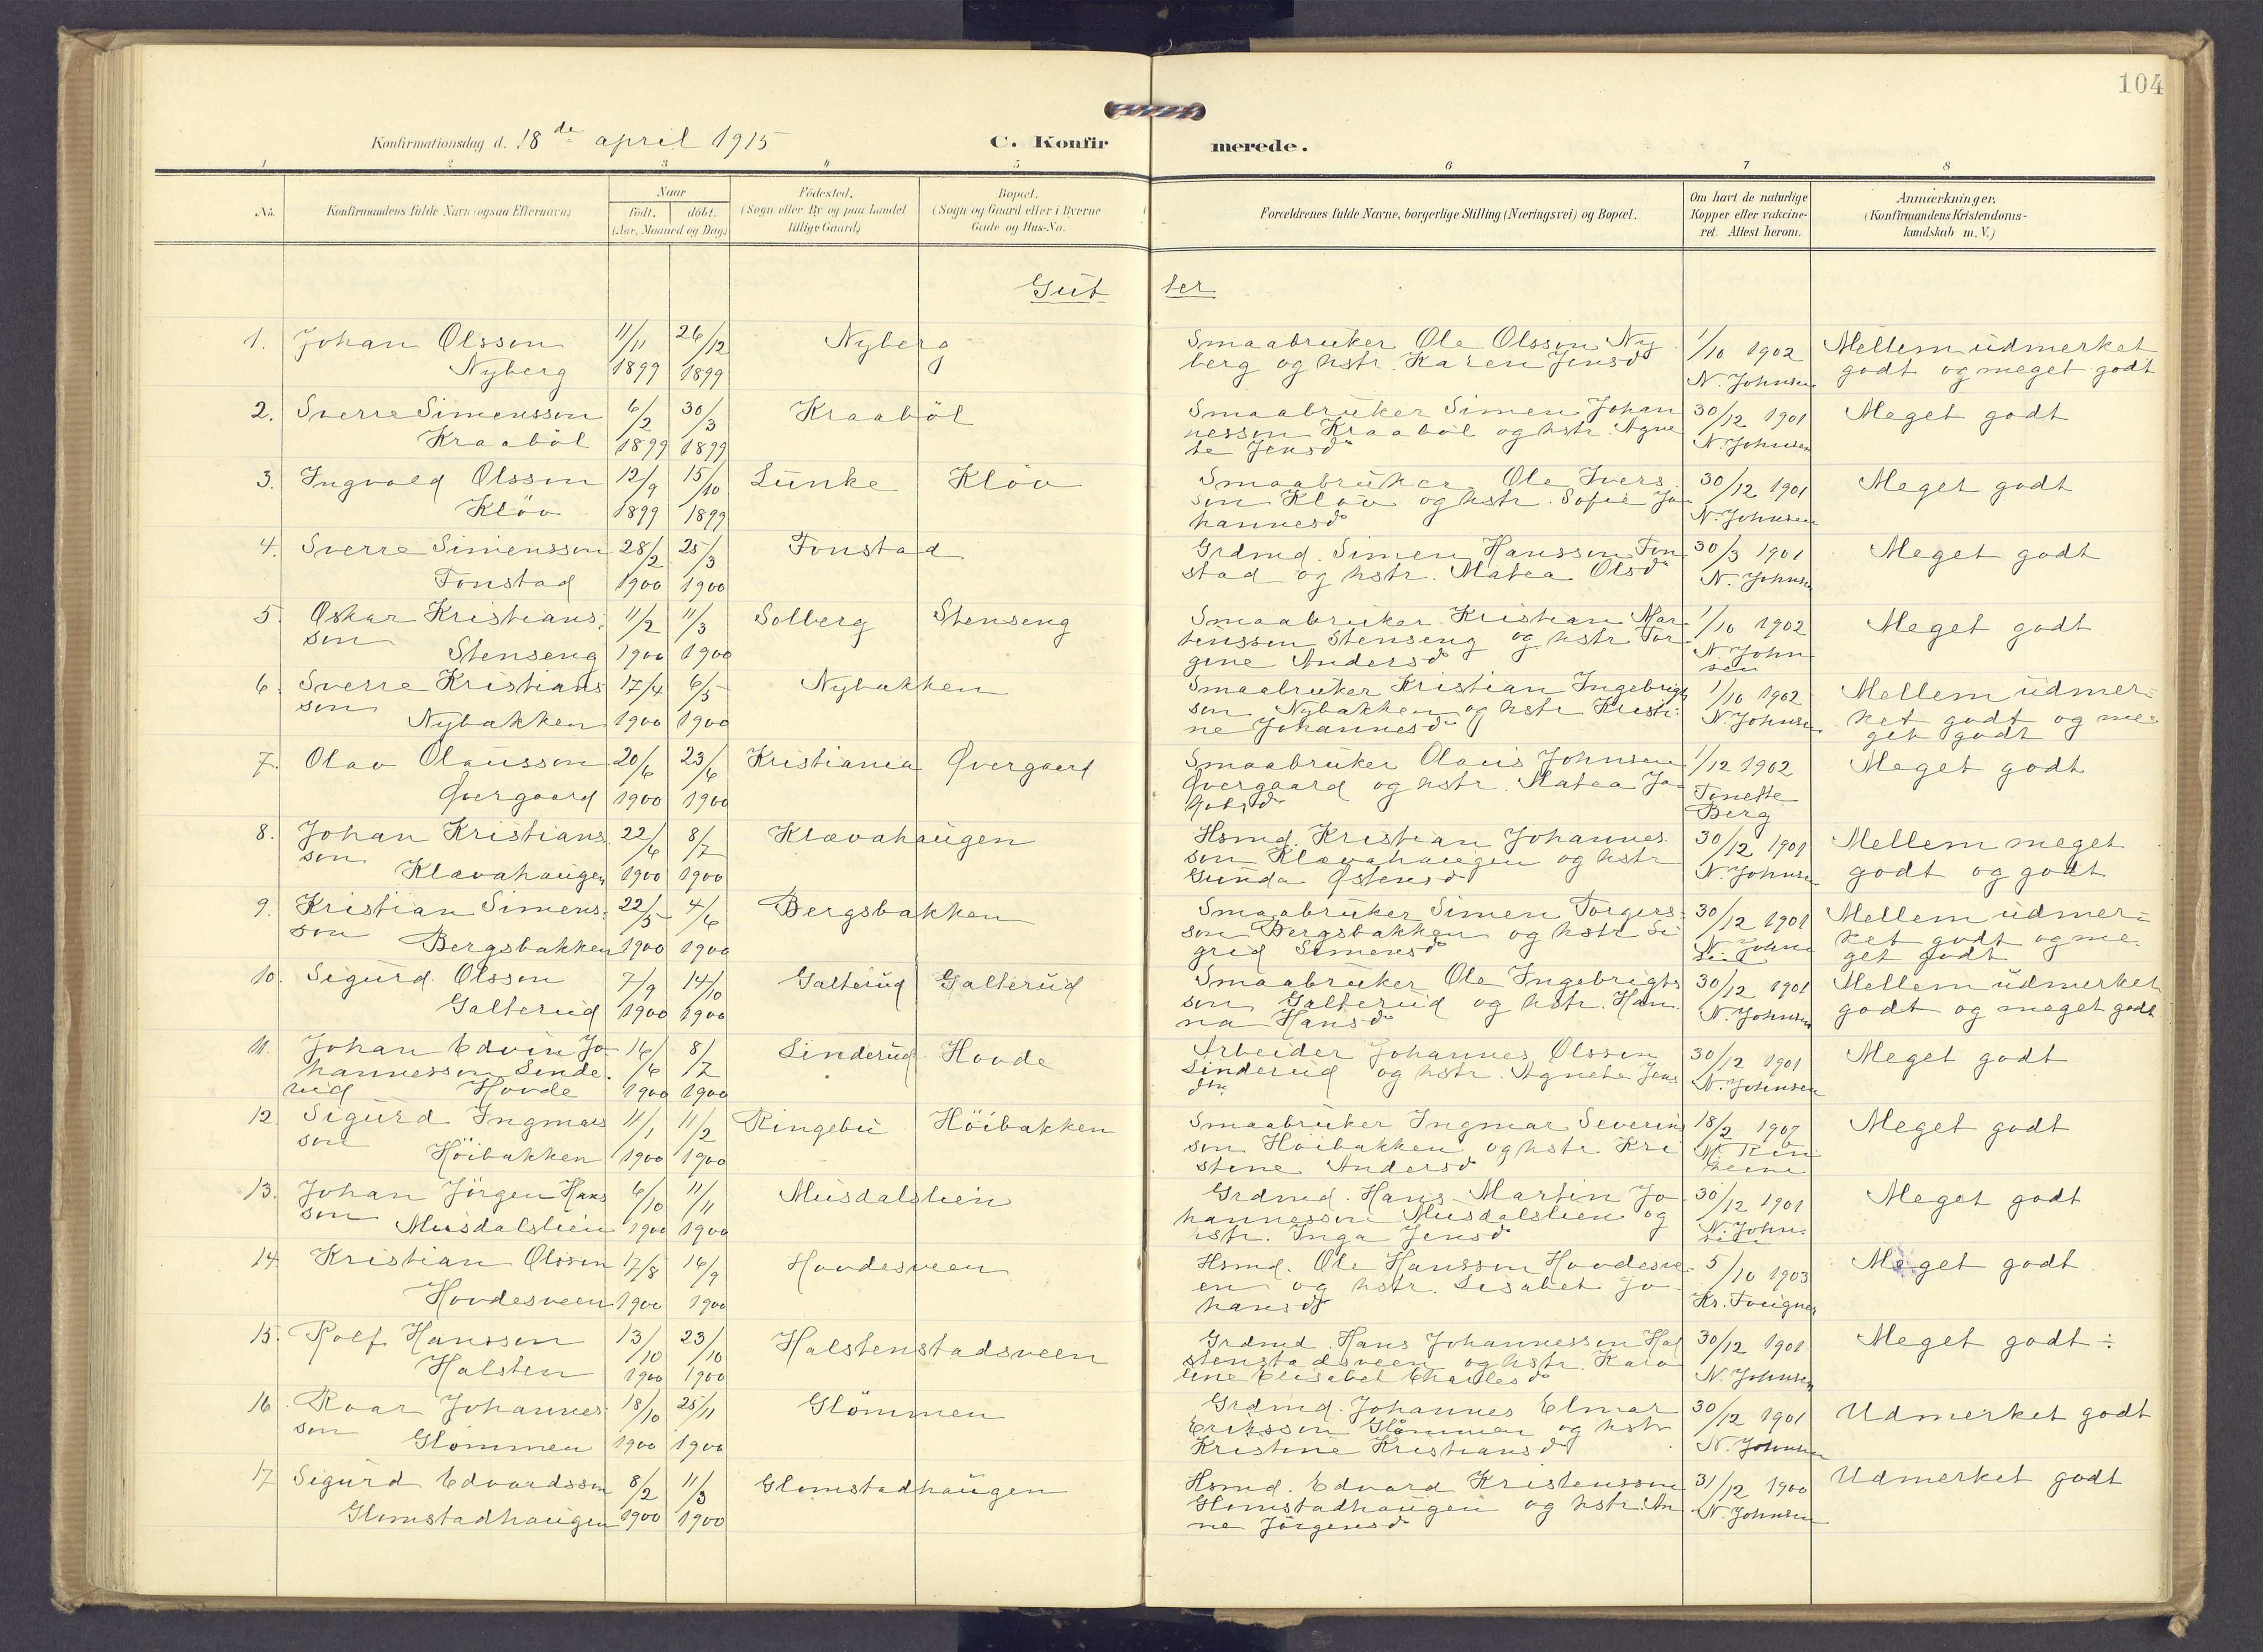 104
Konfirmationsdag d. 18de april 1915
C. Konfir merede.
1 2 3 4 5 6 7 8
No.
Konfirmandens fulde Navn (ogsaa Efternavn)
Naar
født. døbt.
(Aar, Maaned og Dag)
Fødested.
(Sogn eller By og paa Landet
tillige Gaard)
Bopæl.
(Sogn og Gaard eller i Byerne
Gade og Hus-No.
Forældrenes fulde Navne, borgerlige Stilling (Næringsvei) og Bopæl.
Om havt de naturlige
Kopper eller vakcine-
ret. Attest herom.
Anmærkninger.
(Konfirmandens Kristendoms-
kundskab m. V.)
Gut ter
1. Johan Olsson
Nyberg
11/11 1899
26/12 1899
Nyberg
Smaabruker Ole Olsson Ny
berg og hstr. Karen Jensd
1/10 1902
N. Johnsen
Mellem udmerket
godt og meget godt
2. Sverre Simensson
Kraaböl
6/2 1899
30/3 1899
Kraaböl
Smaabruker Simen Johan
nesson Kraaböl og hstr. Agne
te Jensd
30/12 1901
N. Johnsen
Meget godt
3. Ingvald Olsson
Klöv
12/9 1899
15/10 1899
Lunke
Klöv
Smaabruker Ole Ivers
son Klöv og hstr. Sofie Jo
hannesd
30/12 1901
N. Johnsen
Meget godt
4. Sverre Simensson
Fonstad
28/2 1900
25/3 1900
Fonstad
Grdmd. Simen Hansson Fon
stad og hstr. Matea Olsd
30/3 1901
N. Johnsen
Meget godt
5. Oskar Kristians
son
Stenseng
11/2 1900
11/3 1900
Solberg
Stenseng
Smaabruker Kristian Mar
tensson Stenseng og hstr Tor
gine Andersd
1/10 1902
N. John
sen
Meget godt
6. Sverre Kristians
son
Nybakken
17/4 1900
6/5 1900
Nybakken
Smaabruker Kristian Ingebrigts
son Nybakken og hstr Kristi
ne Johannesd
1/10 1902
N. Johnsen
Mellem udmer=
ket godt og me=
get godt
7. Olav Olausson
Øvergaard
20/6 1900
23/6 1900
Kristiania
Øvergaard
Smaabruker Olaus Johnsen
Øvergaard og hstr. Matea Ja
kobsd
1/12 1902
Tinette
Berg
Meget godt
8. Johan Kristians
son
Klævahaugen
22/6 1900
8/7 1900
Klævahaugen
Hsmd. Kristian Johannes
son Klævahaugen og hstr
Gunda Østensd
30/12 1901
N. Johnsen
Mellem meget
godt og godt
9. Kristian Simens
son
Bergsbakken
22/5 1900
4/6 1900
Bergsbakken
Smaabruker Simen Torgers=
son Bergsbakken og hstr Si
grid Simensd
30/12 1901
N. Johnsen
Mellem udmer=
ket godt og me=
get godt
10. Sigurd Olsson
Galterud
7/9 1900
14/10 1900
Galterud
Galterud
Smaabruker Ole Ingebrigts
son Galterud og hstr. Han
na Hansd
30/12 1901
N. Johnsen
Mellem udmerket
godt og meget godt
11. Johan Edvin Jo-
hannesson Linde
rud Hovde
16/6 1900
8/7 1900
Linderud
Hovde
Arbeider Johannes Olsson
Linderud og hstr. Agnete Jens
dtr
30/12 1901
N. Johnsen
Meget godt
12. Sigurd Ingmars
son
Höibakken
11/1 1900
11/2 1900
Ringebu
Höibakken
Smaabruker Ingmar Severins
son Höibakken og hstr Kri
stine Andersd
18/2 1907
Meget godt
13. Johan Jörgen Hans
son
Musdalslien
6/10 1900
11/11 1900
Musdalslien
Grdmd. Hans Martin Jo
hannesson Musdalslien og
hstr. Inga Jensd
30/12 1901
N. John
sen
Meget godt
14. Kristian Olsson
Hovdesveen
17/8 1900
16/9 1900
Hovdesveen
Hsmd. Ole Hansson Hovdesve
en og hstr. Lisabet Jo
hansd
5/10 1903
Meget godt
15. Rolf Hansson
Halsten
13/10 1900
23/10 1900
Halstenstadsveen
Grdmd. Hans Johannesson Hal
stenstadsveen og hstr. Karo
line Elisabet Charlesd
30/12 1901
N. Johnsen
Meget godt ÷
16. Roar Johannes
son
Glömmen
18/10 1900
25/11 1900
Glömmen
Grdmd. Johannes Elmar
Eriksson Glömmen og hstr
Kristine Kristiansd
30/12 1901
N. Johnsen
Udmerket godt
17 Sigurd Edvardsson
Glomstadhaugen
8/2 1900
11/3 1900
Glomstadhaugen
Hsmd. Edvard Kristensson
Glomstadhaugen og hstr. An
ne Jörgensd
31/12 1900
N. Johnsen
Udmerket godt